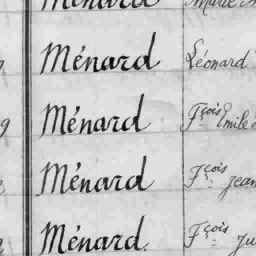 Ménard
Ménard Léonard
Ménard Fçois Emile
Ménard Fçois Jean
Ménard Fçois